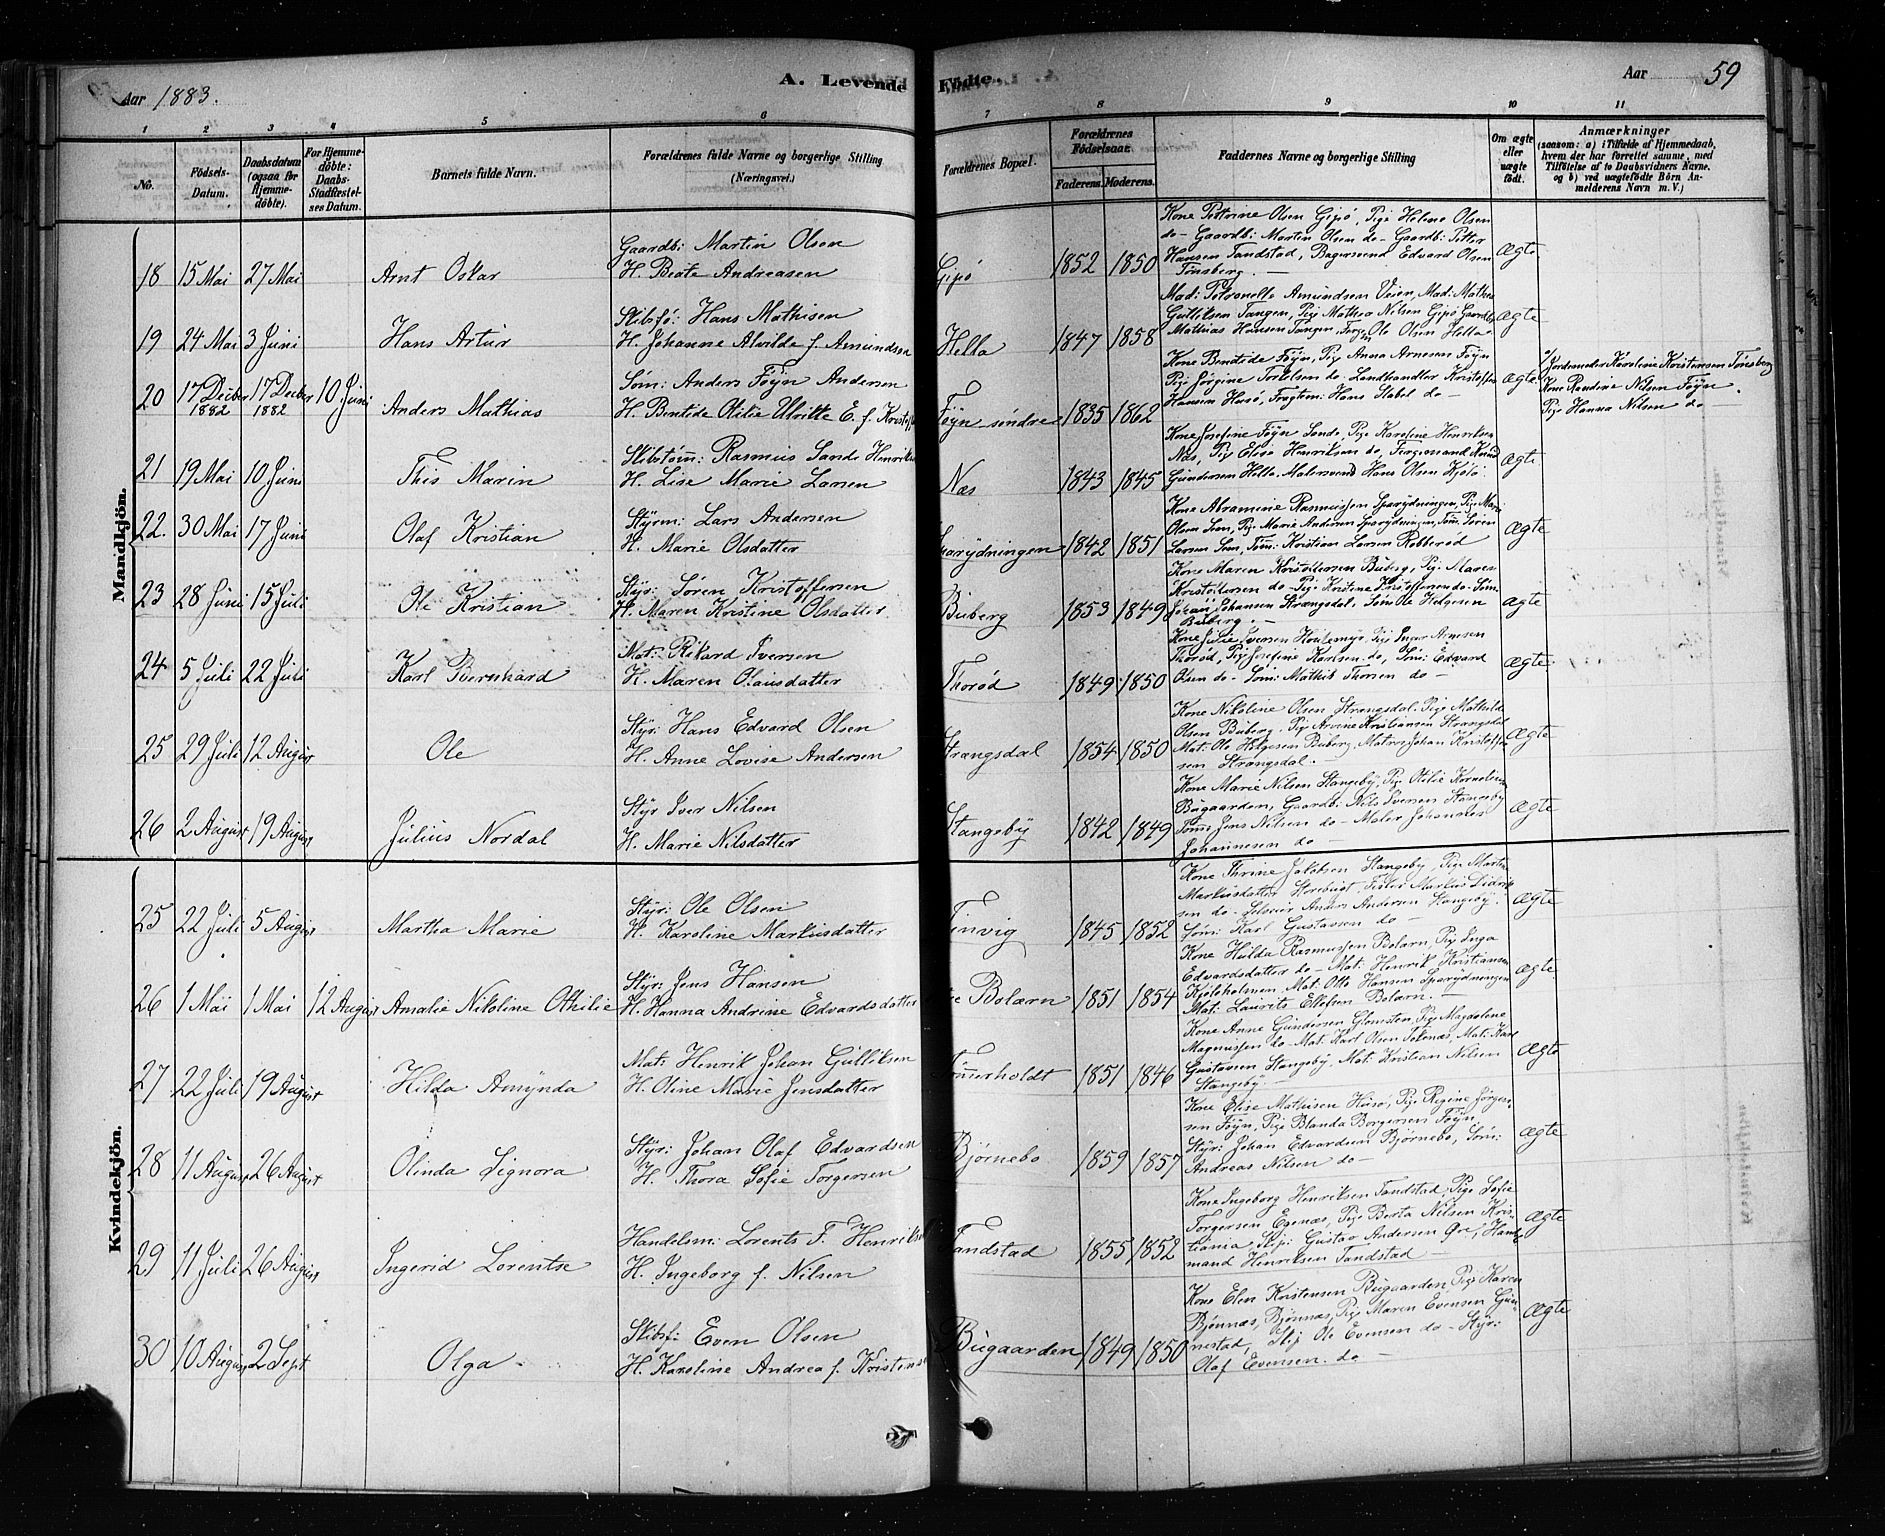 Aar 1883.
A. Levende Födte.
Aar 59
1 2 3 4 5 6 7 8 9 10 11
No.
Födsels-
Datum.
Daabsdatum
(ogsaa for
Hjemme-
döbte).
For Hjemme-
döbte:
Daabs-
Stadfæstel-
ses Datum.
Barnets fulde Navn.
Forældrenes fulde Navne og borgerlige Stilling
(Næringsvei.)
Forældrenes Bopæl.
Forældrenes
Födselsaar.
Faderens. Moderens.
Faddernes Navne og borgerlige Stilling
Om ægte
eller
uægte
födt.
Anmærkninger
(saasom: a) i Tilfælde af Hjemmedaab,
hvem der har forrettet samme, med
Tilföielse af to Daabsvidners Navne,
og b) ved uægtefödte Börn An-
melderens Navn m. V.)
Mandkjön.
18 15 Mai 27 Mai Arnt Oskar
Gaardb: Martin Olsen
H. Beate Andreasen
Gipö 1852 1850
Kone Petrine Olsen Gipö, Pige Helene Olsen
do - Gaardb: Martin Olsen do - Gaardb: Petter
Hansen Tandstad, Bagersvend Edvard Olsen
Tönsberg. -
Ægte
19 24 Mai 3 Juni Hans Artur
Skibsfö: Hans Mathisen
H. Johanne Alvilde f. Amundsen
Hella 1847 1858
Mad: Petronelle Amundsen Veien, Mad: Mathea
Gulliksen Tangen, Pige Mathea Nilsen Gipö
Mathias Hansen Tangen, Ole Olsen Hella.
ægte
20 17 Decbr 1882 17 Decber 1882 10 Juni Anders Mathias
Söm: Anders Föyn Andersen
H. Bentide Otilie Ulrikke E. f. Kristoff
Föyn söndre 1835 1862
Kone Bentede Föyn, Pig Anna Arnesen Föyn
Pige Jörgine Torkelsen do Landhandler Kristoffer
Hansen Husö, Hans Stabel do -
ægte
a/ Jordemoder Karoline Kristensen Tönsberg
Kone Randine Nilsen Föyn
Pige Hanna Nilsen do
21 19 Mai 10 Juni This Marin
Skibstöm: Rasmus Sande Henriks
H. Lise Marie Larsen
Næs 1843 1845
Kone Josefine Föyn Sande, Pige Karoline Henriksen
Næs, Pige Elise Henriksen do, Færgemand Knud
Gundersen Hella, Malersvend Hans Olsen Kjölö
Ægte
22. 30 Mai 17 Juni Olaf Kristian
Styrm: Lars Andersen
H. Marie Olsdatter
1842 1851
Kone Abramine Rasmussen Sparydningen, Pige Mar
Olsen Sem, Pige Marie Andersen Sparydningen, Söm: Sören
Larsen Sem, Söm: Kristian Larsen Robberöd
Ægte
23 28 Juni 15 Juli Ole Kristian
Styr: Sören Kristoffersen
H. Maren Kristine Olsdatter
Buberg 1853 1849
Kone Maren Kristoffersen Buberg, Pig: Maren
Kristoffersen do - Pige Kristine Kristoffersen do - Söm:
Johan Johansen Strængsdal, Söm Ole Helgesen
Buberg. -
ægte
24 5 Juli 22 Juli Karl Bernhard
Mat: Rikard Iversen
H. Maren Olausdatter
Thoröd 1849 1850
Kone Julie Iversen Pige Inger Arnesen
Thoröd, Pig: Josefine Karlsen do, Söm: Edvard
Olsen do - Söm: Mathis Thorsen do -
ægte
25 29 Juli 12 August Ole
Styr: Hans Edvard Olsen
H. Anne Lovise Andersen
Strangsdal 1854 1850
Kone Nikoline Olsen Strangsdal, Pige Mathilde
Olsen Buberg, Pige Arvine Kristiansen Strangsdal
Mat: Ole Helgesen Buberg, Matros Johan Kristoffer
sen Strængsdal. -
Ægte
26 2 August 19 August Julius Nordal
Styr Iver Nilsen
H. Marie Nilsdatter
Stangeby 1842 1849
Kone Marie Nilsen Stangeby, Pige Otilie Kornelius
Bugaarden, Gaardb: Nils Iversen Stangeby
Söm: Jens Nilsen do - Maler Johannes
Johannesen do -
Ægte
Kvindekjön.
25 22 Juli 5 August Martha Marie
Styr: Ole Olsen
H. Karoline Markusdatter
Vinvig 1845 1852
Kone Thrine Jakobsen Stangeby, Pige Martin
Markusdatter Storebugt, Fisker Markus Didrik
sen do - Selveier Anders Andersen Stangeby.
Söm: Karl Gustavsen do -
Ægte
26 1 Mai 1 Mai 12 August Amalie Nikoline Othilie
Styr: Jens Hansen
H. Hanna Andrine Edvardsdatter
Bolærn 1851 1854
Kone Hulda Rasmussen Bolærn, Pig Inga
Edvardsdatter do - Mat: Henrik Kristiansen
Kjöleholmen Mat: Otto Hansen Sparydningen
Mat: Laurits Ellefsen Bolærn. -
ægte
27 22 Juli 19 August Hilda Amynda
Mat: Henrik Johan Gulliksen
H. Oline Marie Jensdatter
1851 1846
Kone Anne Gundersen Glomsten, Pige Magdalene
Magnussen do - Mat. Karl Olsen Teknæs, Mat: Karl
Gustavsen Stangeby, Mat. Kristian Nilsen
Stangeby -
Ægte
28 11 August 26 August Olinda Signora
Styr: Johan Olaf Edvardsen
H. Thora Sofie Torgersen
Björnebo 1859 1857
Kone Elise Mathisen Husö, Pige Regine Jörgen
sen Föyn, Pige Blanda Borgersen Föyn,
Styr: Johan Edvardsen Björnebo, Söm:
Andreas Nilsen do -
ægte
29 11 Juli 26 August Ingerid Lorentse
Handelsm: Lorents F. Henriks
H. Ingeborg f. Nilsen
Tandstad 1855 1852
Kone Ingeborg Henriksen Tandstad, Pige Sofie
Torgersen Egenæs, Pige Berta Nilsen Kris-
tiania, Skip: Gustav Andersen
mand Henriksen Tandstad -
Ægte
30 10 August 2 Sept Olga -
Skibsf: Even Olsen
H. Karoline Andrea f. Kristens
Bugaarden 1849 1850
Kone Elen Kristensen Bugaarden, Pige Karen
Björnnæs, Björnnæs, Pige Maren Evensen Gun
nestad, Skip Ole Evensen do - Styr:
Olaf Evensen do -
Ægte